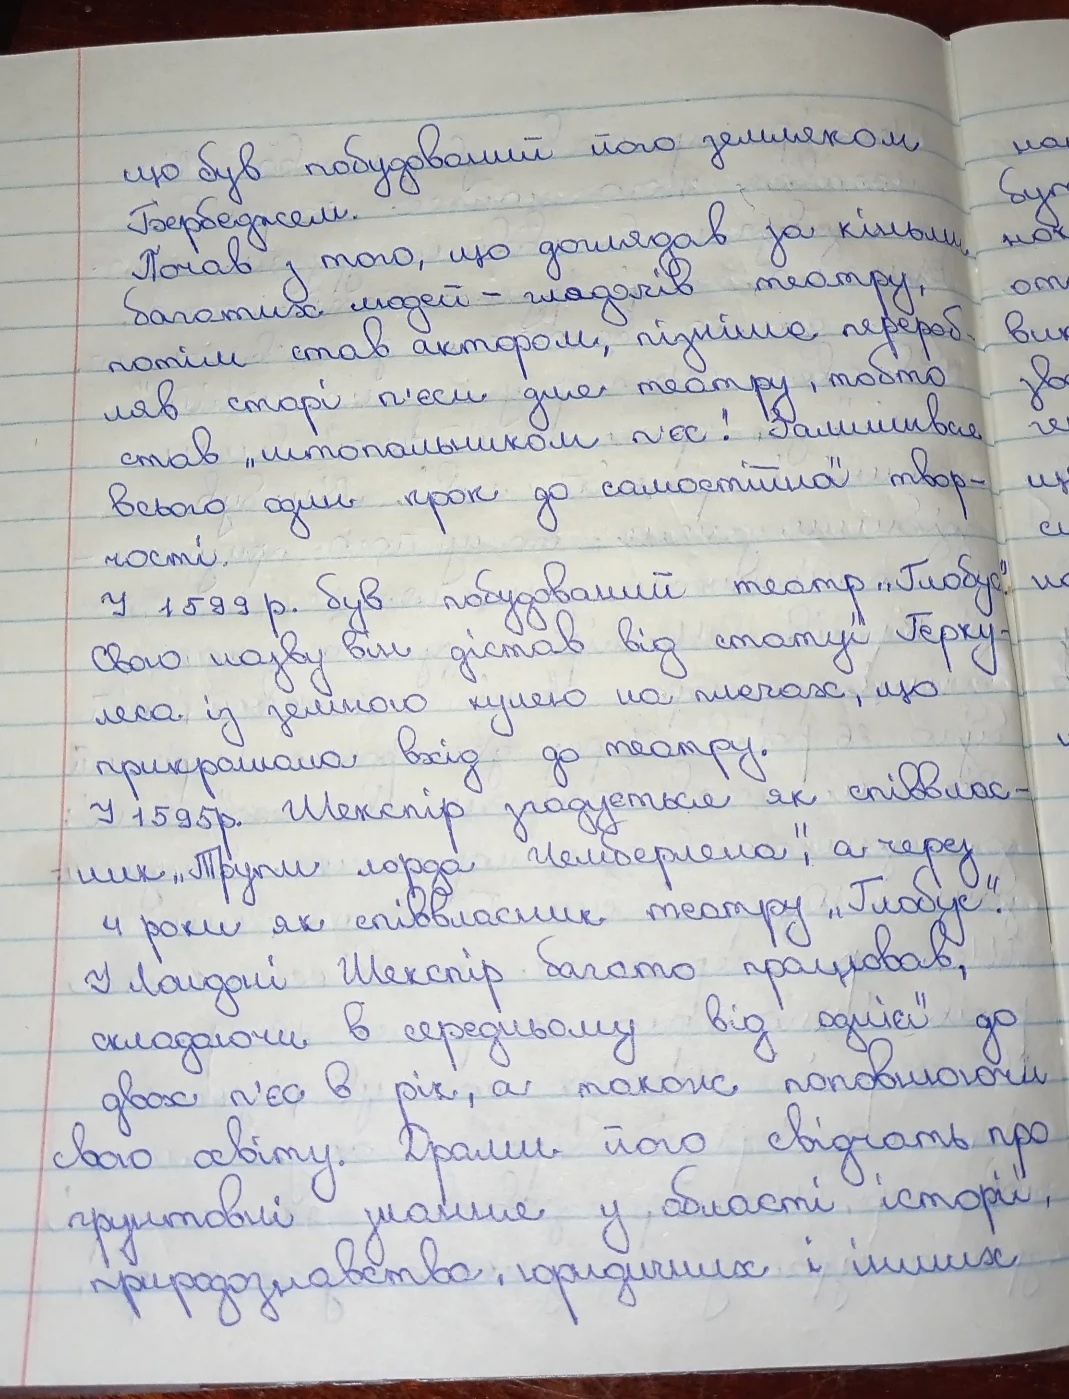 що був побудований його земляком
Бербеджем.
Почав з того, що доглядав за кіньми
багатих людей - глядачів театру,
потім став актором, пізніше перероб-
ляв старі п'єси для театру, тобто
став „штопальником п'єс! Залишився
всього один крок до самостійної твор-
чості.
У 1599 р. був побудований театр „Глобус".
Свою назву він дістав від статуї Герку-
леса із земною кулею на плечах, що
прикрашала вхід до театру.
У 1595р. Шекспір згадується як співвлас-
ник „Трупи лорда Чемберлена", а через
4 роки як співвласник театру „Глобус".
У Лондоні Шекспір багато працював,
складаючи в середньому від однієї до
двох п'єс в рік, а також поповнюючи
свою освіту. Драми його свідчать про
грунтовні знання у області історії,
природознавства, юридичних і інших